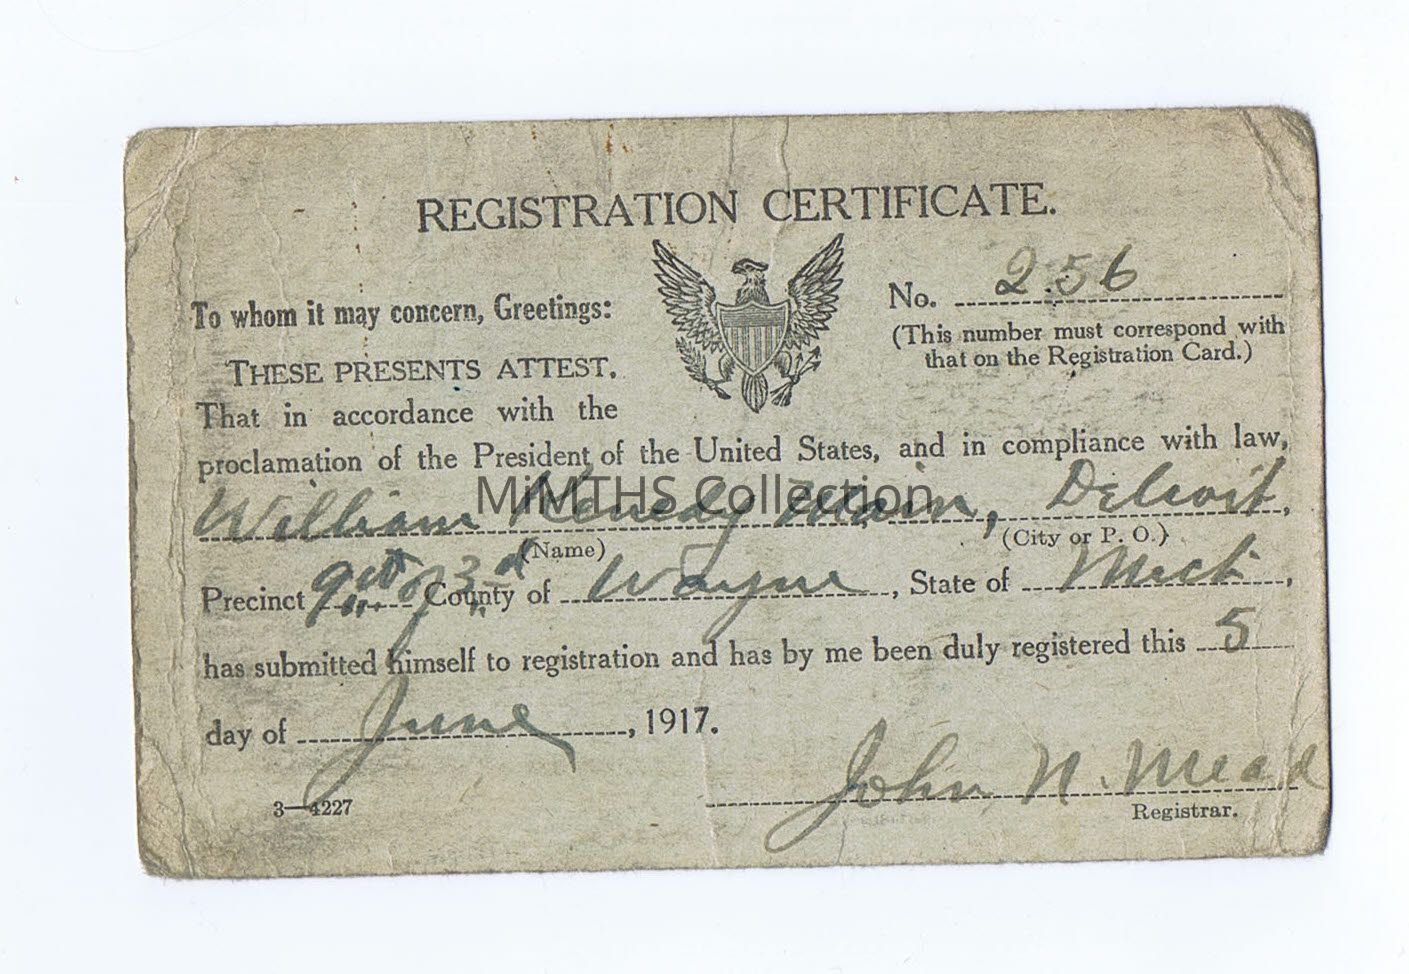 REGISTRATION CERTIFICATE.
No. 256
(This number must correspond with
that on the Registration Card.)
To whom it may concern, Greetings:
THESE PRESENTS ATTEST,
That in accordance with the
proclamation of the President of the United States, and in compliance with law,
MiMTHS Collection
William Kenedy Main, Detroit,
(Name) (City or P. O.)
Precinct 9 of 3d County of Wayne, State of Mich.,
has submitted himself to registration and has by me been duly registered this 5
day of June, 1917.
John N. Mead
3—4227 Registrar.